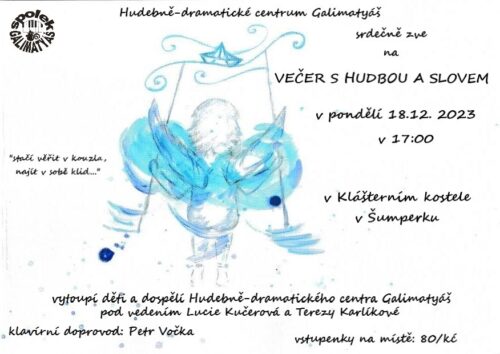 spolek
GALIMATYÁŠ
Hudebně-dramatické centrum Galimatyáš
srdečně zve
na
VEČER S HUDBOU A SLOVEM
v pondělí 18.12. 2023
v 17:00
"stačí věřit v kouzla,
najít v sobě klid..."
v Klášterním kostele
v Šumperku
vytoupí děti a dospělí Hudebně-dramatického centra Galimatyáš
pod vedením Lucie Kučerová a Terezy Karlíkové
klavírní doprovod: Petr Vočka
vstupenky na místě: 80/kč